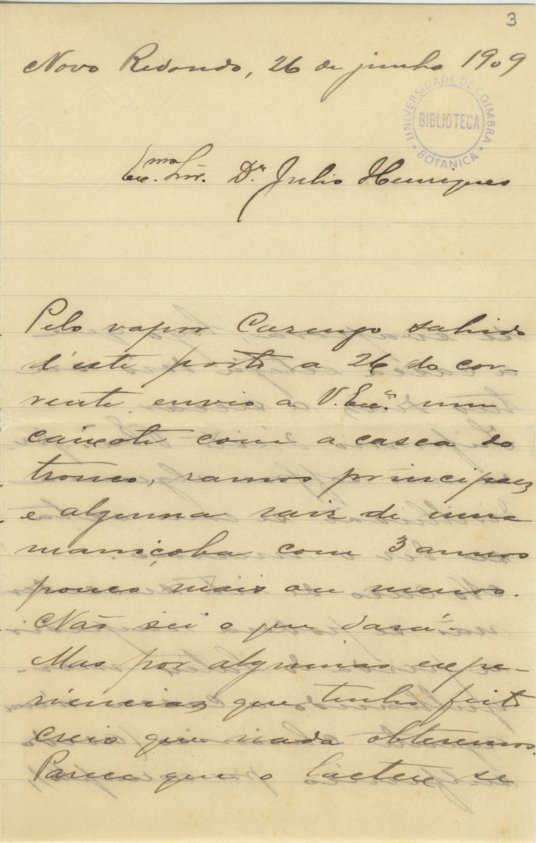 3
Novo Redondo, 26 de junho 1909
UNIVERSIDADE DE COIMBRA
BIBLIOTECA
BOTANICA
Exmo. Snr. Dr. Julio Henriques
Pelo vapor Cazengo sahido
d'este porto a 26 do cor-
rente envio a V. Exc.ª um
caixote com a casca do
tronco, ramos principaes
e alguma raiz de uma
maniçoba com 3 annos
pouco mais ou menos.
Não sei o que dará.
Mas por algumas expe-
riencias que tenho feito
creio que nada obteremos.
Parece que o latex se